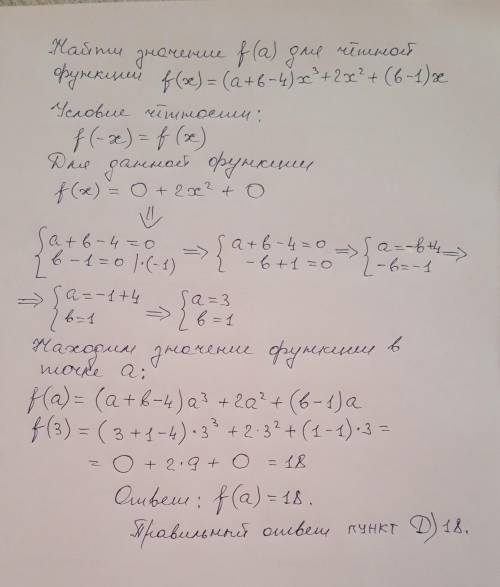 Найти значение f(a) для чётной
функции f(x) = (a+b-4)x³+2x²+(b-1)x
Условие чётности:
f(-x) = f(x)
Для данной функции
f(x) = 0 + 2x² + 0
⇓
{a+b-4=0 {b-1=0 |·(-1) ⇒ {a+b-4=0 {-b+1=0 ⇒ {a=-b+4 {-b=-1 ⇒
⇒ {a=-1+4 {b=1 ⇒ {a=3 {b=1
Находим значение функции в
точке a:
f(a) = (a+b-4)a³ +2a² +(b-1)a
f(3) = (3+1-4)·3³ +2·3² +(1-1)·3 =
= 0 + 2·9 + 0 = 18
Ответ: f(a) = 18.
Правильный ответ пункт D) 18.